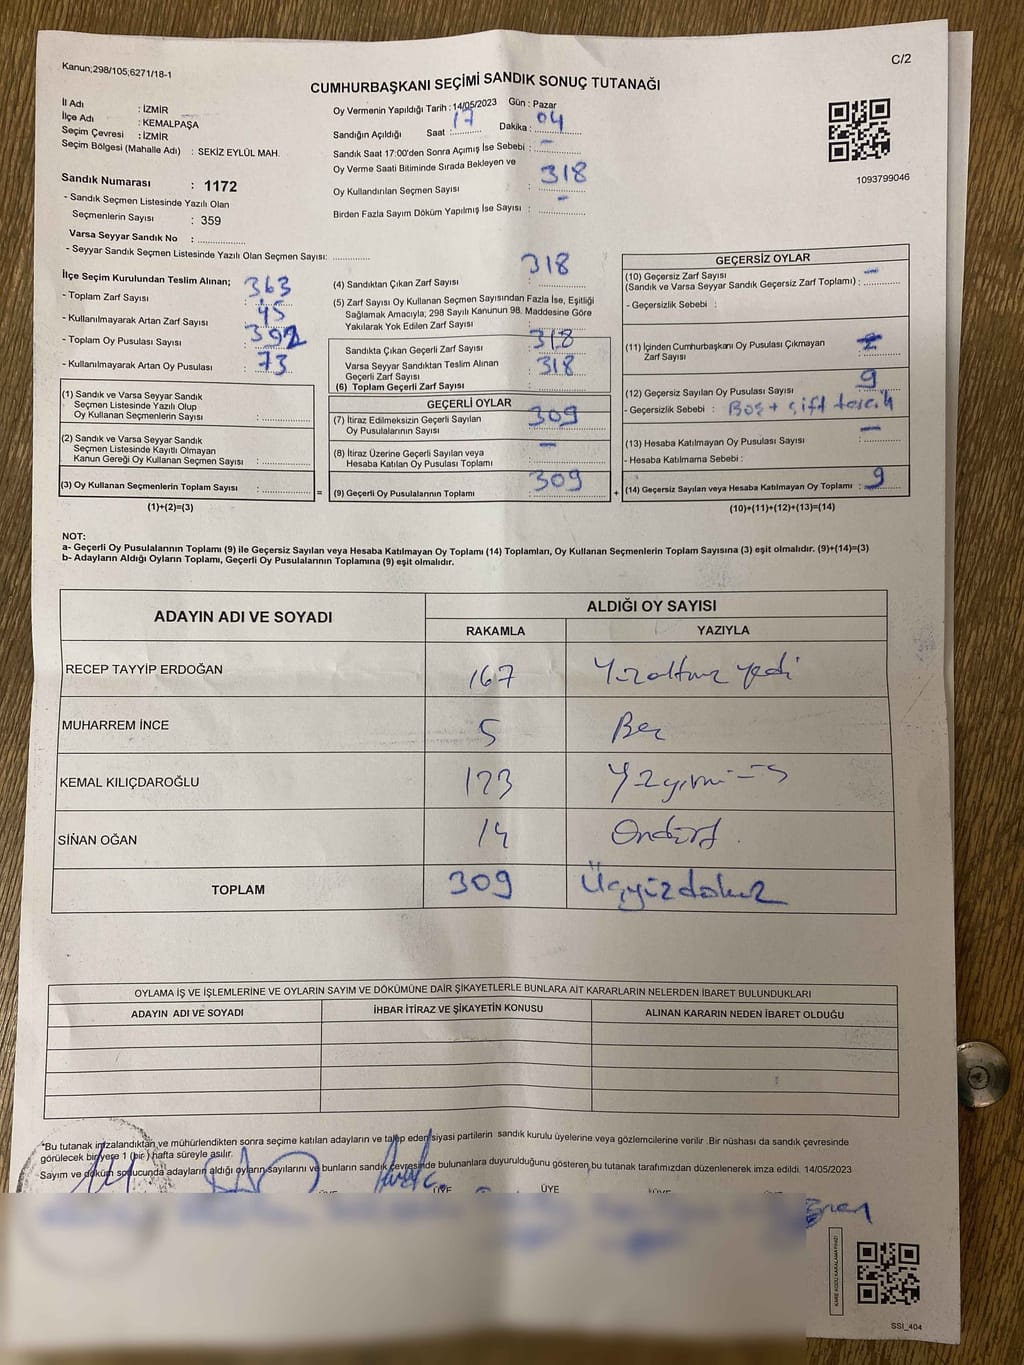 Kanun;298/105;6271/18-1
C/2
CUMHURBAŞKANI SEÇİMİ SANDIK SONUÇ TUTANAĞI
İl Adı : İZMİR
İlçe Adı : KEMALPAŞA
Seçim Çevresi : İZMİR
Seçim Bölgesi (Mahalle Adı) : SEKİZ EYLÜL MAH.
Oy Vermenin Yapıldığı Tarih : 14/05/2023 Gün : Pazar
Sandığın Açıldığı Saat : 17 Dakika : 04
Sandık Saat 17:00'den Sonra Açımış İse Sebebi : -
Oy Verme Saati Bitiminde Sırada Bekleyen ve
Oy Kullandırılan Seçmen Sayısı : 318
Birden Fazla Sayım Döküm Yapılmış İse Sayısı : -
1093799046
Sandık Numarası : 1172
- Sandık Seçmen Listesinde Yazılı Olan
Seçmenlerin Sayısı : 359
Varsa Seyyar Sandık No :
- Seyyar Sandık Seçmen Listesinde Yazılı Olan Seçmen Sayısı:
İlçe Seçim Kurulundan Teslim Alınan;
- Toplam Zarf Sayısı : 363
- Kullanılmayarak Artan Zarf Sayısı : 45
- Toplam Oy Pusulası Sayısı : 392
- Kullanılmayarak Artan Oy Pusulası : 73
(1) Sandık ve Varsa Seyyar Sandık
Seçmen Listesinde Yazılı Olup
Oy Kullanan Seçmenlerin Sayısı :
(2) Sandık ve Varsa Seyyar Sandık
Seçmen Listesinde Kayıtlı Olmayan
Kanun Gereği Oy Kullanan Seçmen Sayısı :
(3) Oy Kullanan Seçmenlerin Toplam Sayısı : =
(1)+(2)=(3)
(4) Sandıktan Çıkan Zarf Sayısı : 318
(5) Zarf Sayısı Oy Kullanan Seçmen Sayısından Fazla İse, Eşitliği
Sağlamak Amacıyla; 298 Sayılı Kanunun 98. Maddesine Göre
Yakılarak Yok Edilen Zarf Sayısı :
Sandıkta Çıkan Geçerli Zarf Sayısı : 318
Varsa Seyyar Sandıktan Teslim Alınan
Geçerli Zarf Sayısı : 318
(6) Toplam Geçerli Zarf Sayısı :
GEÇERLİ OYLAR
(7) İtiraz Edilmeksizin Geçerli Sayılan
Oy Pusulalarının Sayısı : 309
(8) İtiraz Üzerine Geçerli Sayılan veya
Hesaba Katılan Oy Pusulası Toplamı : -
(9) Geçerli Oy Pusulalarının Toplamı : 309 +
GEÇERSİZ OYLAR
(10) Geçersiz Zarf Sayısı
(Sandık ve Varsa Seyyar Sandık Geçersiz Zarf Toplamı) : -
- Geçersizlik Sebebi :
(11) İçinden Cumhurbaşkanı Oy Pusulası Çıkmayan
Zarf Sayısı :
(12) Geçersiz Sayılan Oy Pusulası Sayısı : 9
- Geçersizlik Sebebi : Boş + çift tercih
(13) Hesaba Katılmayan Oy Pusulası Sayısı : -
- Hesaba Katılmama Sebebi :
(14) Geçersiz Sayılan veya Hesaba Katılmayan Oy Toplamı : 9
(10)+(11)+(12)+(13)=(14)
NOT:
a- Geçerli Oy Pusulalarının Toplamı (9) ile Geçersiz Sayılan veya Hesaba Katılmayan Oy Toplamı (14) Toplamları, Oy Kullanan Seçmenlerin Toplam Sayısına (3) eşit olmalıdır. (9)+(14)=(3)
b- Adayların Aldığı Oyların Toplamı, Geçerli Oy Pusulalarının Toplamına (9) eşit olmalıdır.
ADAYIN ADI VE SOYADI ALDIĞI OY SAYISI
RAKAMLA YAZIYLA
RECEP TAYYİP ERDOĞAN 167 Yüzaltmış yedi
MUHARREM İNCE 5 Beş
KEMAL KILIÇDAROĞLU 123 Yüzyirmi üç
SİNAN OĞAN 14 Ondört
TOPLAM 309 Üçyüzdokuz
OYLAMA İŞ VE İŞLEMLERİNE VE OYLARIN SAYIM VE DÖKÜMÜNE DAİR ŞİKAYETLERLE BUNLARA AİT KARARLARIN NELERDEN İBARET BULUNDUKLARI
ADAYIN ADI VE SOYADI İHBAR İTİRAZ VE ŞİKAYETİN KONUSU ALINAN KARARIN NEDEN İBARET OLDUĞU
*Bu tutanak imzalandıktan ve mühürlendikten sonra seçime katılan adayların ve talep eden siyasi partilerin sandık kurulu üyelerine veya gözlemcilerine verilir .Bir nüshası da sandık çevresinde
görülecek bir yere 1 (bir ) hafta süreyle asılır.
Sayım ve döküm sonucunda adayların aldığı oyların sayılarını ve bunların sandık çevresinde bulunanlara duyurulduğunu gösteren bu tutanak tarafımızdan düzenlenerek imza edildi. 14/05/2023
ÜYE ÜYE
KARE KODU KARALAMAYINIZ!
SSI_404